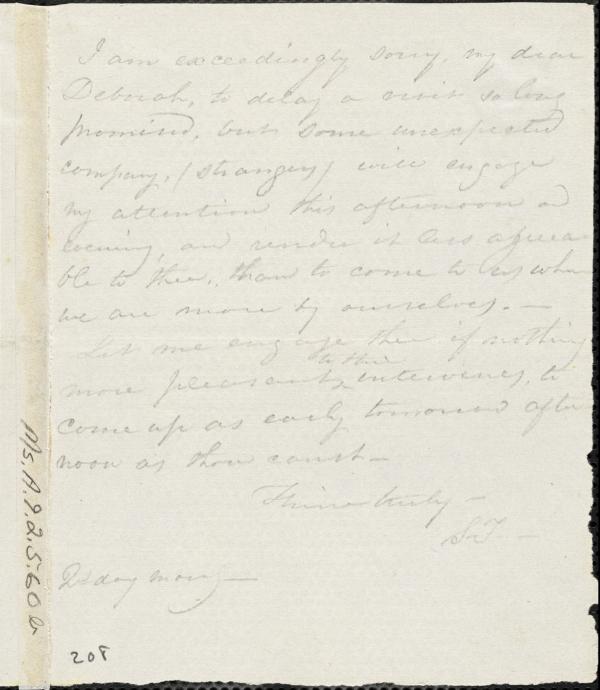 I am exceedingly sorry, my dear
Deborah, to delay a visit so long
promised, but some unexpected
company, (strangers) will engage
my attention this afternoon and
evening, and render it less agreea-
ble to thee, than to come to us when
we are more by ourselves. —
Let me engage thee if nothing
to thee
more pleasant, intervenes, to
come up as early tomorrow after
noon as thou canst —
Thine truly —
S.T. —
2d day morng —
Ms. A. 9. 2. 5. 60 b
208